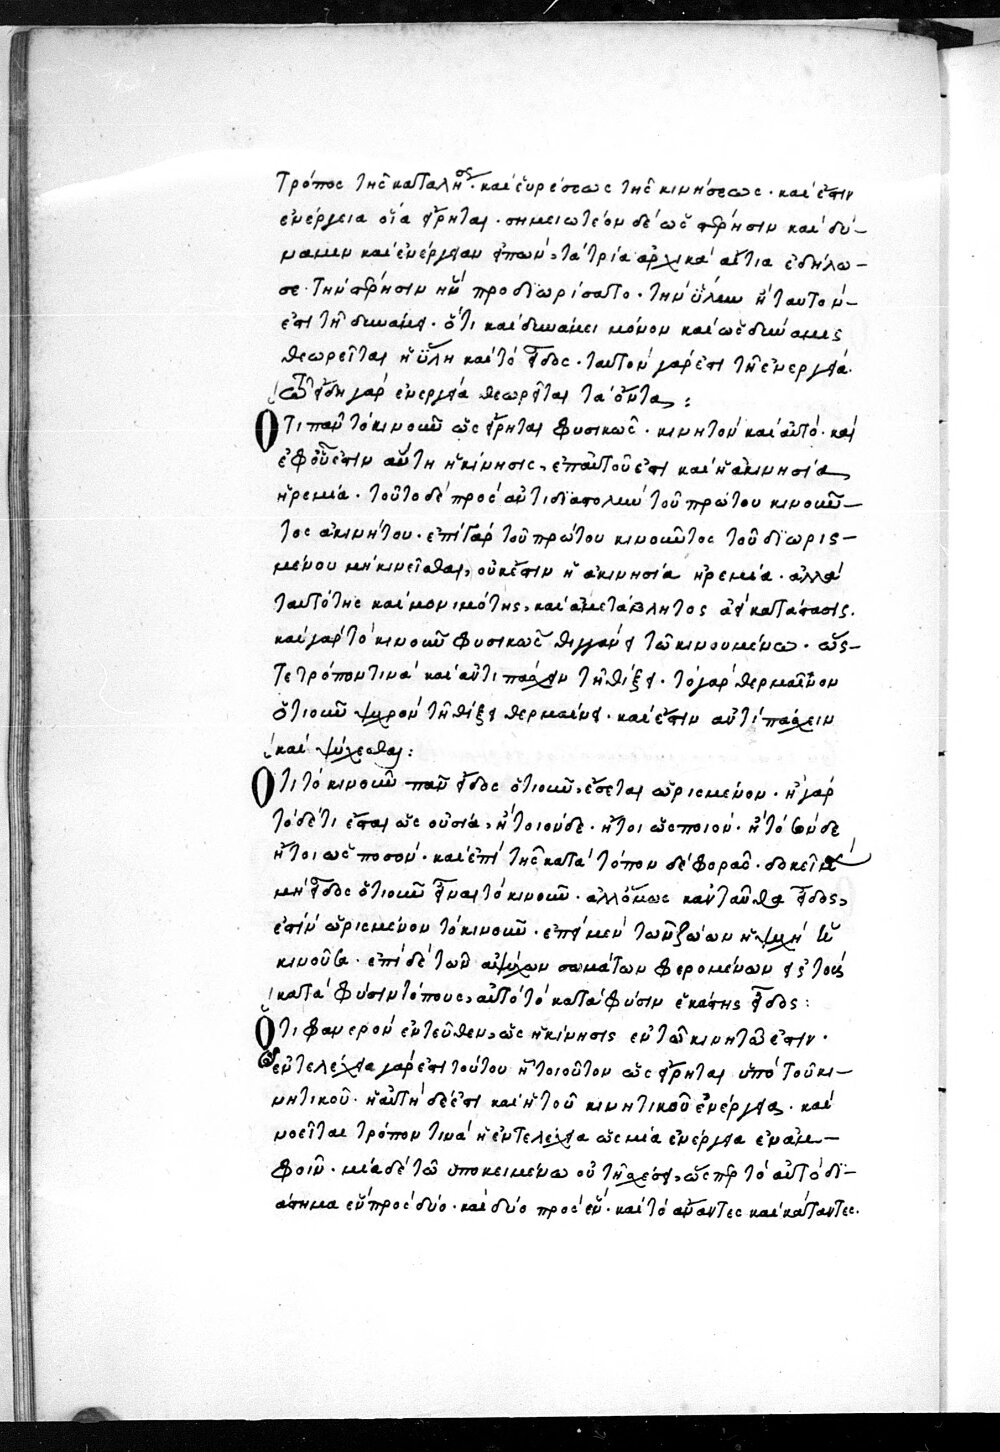 τρόπος τῆς καταλή· καὶ εὑρέσεως τῆς κινήσεως· καὶ ἔστιν
ἐνέργεια οἵα εἴρηται· σημειωτέον δὲ ὡς στέρησιν καὶ δύ-
ναμιν καὶ ἐνέργειαν εἰπὼν, τὰ τρία ἀρχικὰ αἴτια ἐδήλω-
σε· τὴν στέρησιν ἣν προδιωρίσατο· τὴν ὕλην ἢ ταυτὸν
ἐπὶ τῆ δυνάμει· ὅτι καὶ δυνάμει μόνον καὶ ὡς δύναμις
θεωρεῖται ἡ ὕλη καὶ τὸ εἶδος· ταυτὸν γάρ ἐστι τῆ ἐνεργεία·
τῶ εἴδη γὰρ ἐνεργεία θεωρεῖται τὰ ὄντα:
Ὅτι πᾶν τὸ κινοῦν ὡς εἴρηται φυσικῶς· κινητὸν καὶ αὐτό· καὶ
ἐφ' οὗ ἐστιν αὕτη ἡ κίνησις, ἐπ' αὐτοῦ ἐστι καὶ ἡ ἀκινησία,
ἠρεμία· τοῦτο δὲ πρὸς ἀντιδιαστολὴν τοῦ πρώτου κινοῦν-
τος ἀκινήτου· ἐπὶ γὰρ τοῦ πρώτου κινοῦντος τοῦ διωρισ-
μένου μὴ κινεῖσθαι, οὐκ ἔστιν ἡ ἀκινησία ἠρεμία· ἀλλὰ
ταυτότης καὶ μονιμότης, καὶ ἀμετάβλητος ἀεὶ κατάστασις.
καὶ γὰρ τὸ κινοῦν φυσικῶς θιγγάνει τῶ κινουμένω· ὥς-
τε τρόπον τινὰ καὶ ἀντιπάσχειν τῆ θίξει· τὸ γὰρ θερμαῖνον
ὁτιοῦν ψυχρὸν τῆ θίξει θερμαίνει· καὶ ἔστιν ἀντιπάσχειν
καὶ ψύχεσθαι:
Ὅτι τὸ κινοῦν πᾶν εἶδος ὁτιοῦν, ἔσεται ὡρισμένον· ἢ γὰρ
τὸ δέ τι ἔσται ὡς οὐσία, ἢ τοιόνδε· ἤτοι ὡς ποιόν· ἢ τοσόνδε
ἤτοι ὡς ποσόν· καὶ ἐπὶ τῆς κατὰ τόπον δὲ φορᾶς· δοκεῖ μὲν
μὴ εἶδος ὁτιοῦν εἶναι τὸ κινοῦν· ἀλλ' ὅμως κἀνταῦθα εἶδος,
ἐστὶν ὡρισμένον τὸ κινοῦν· ἐπὶ μὲν τῶν ζώων ἡ ψυχὴ τὸ
κινοῦν· ἐπὶ δὲ τῶν ἀψύχων σωμάτων φερομένων εἰς τοὺς
κατὰ φύσιν τόπους, αὐτὸ τὸ κατὰ φύσιν ἑκάστης εἶδος:
Ὅτι φανερὸν ἐντεῦθεν, ὡς ἡ κίνησις ἐν τῶ κινητῶ ἐστιν·
ἐντελέχεια γάρ ἐστι τούτου ἢ τοιοῦτον ὡς εἴρηται ὑπὸ τοῦ κι-
νητικοῦ· ἡ αὐτὴ δέ ἐστι καὶ ἡ τοῦ κινητικοῦ ἐνέργεια· καὶ
νοεῖται τρόπον τινὰ ἡ ἐντελέχεια ὡς μία ἐνέργεια ἐν ἀμ-
φοῖν· μία δὲ τῶ ὑποκειμένω οὐ τῆ σχέσει, ὥσπερ τὸ αὐτὸ δι-
άστημα ἓν πρὸς δύο· καὶ δύο πρὸς ἕν· καὶ τὸ ἄναντες καὶ κάταντες.